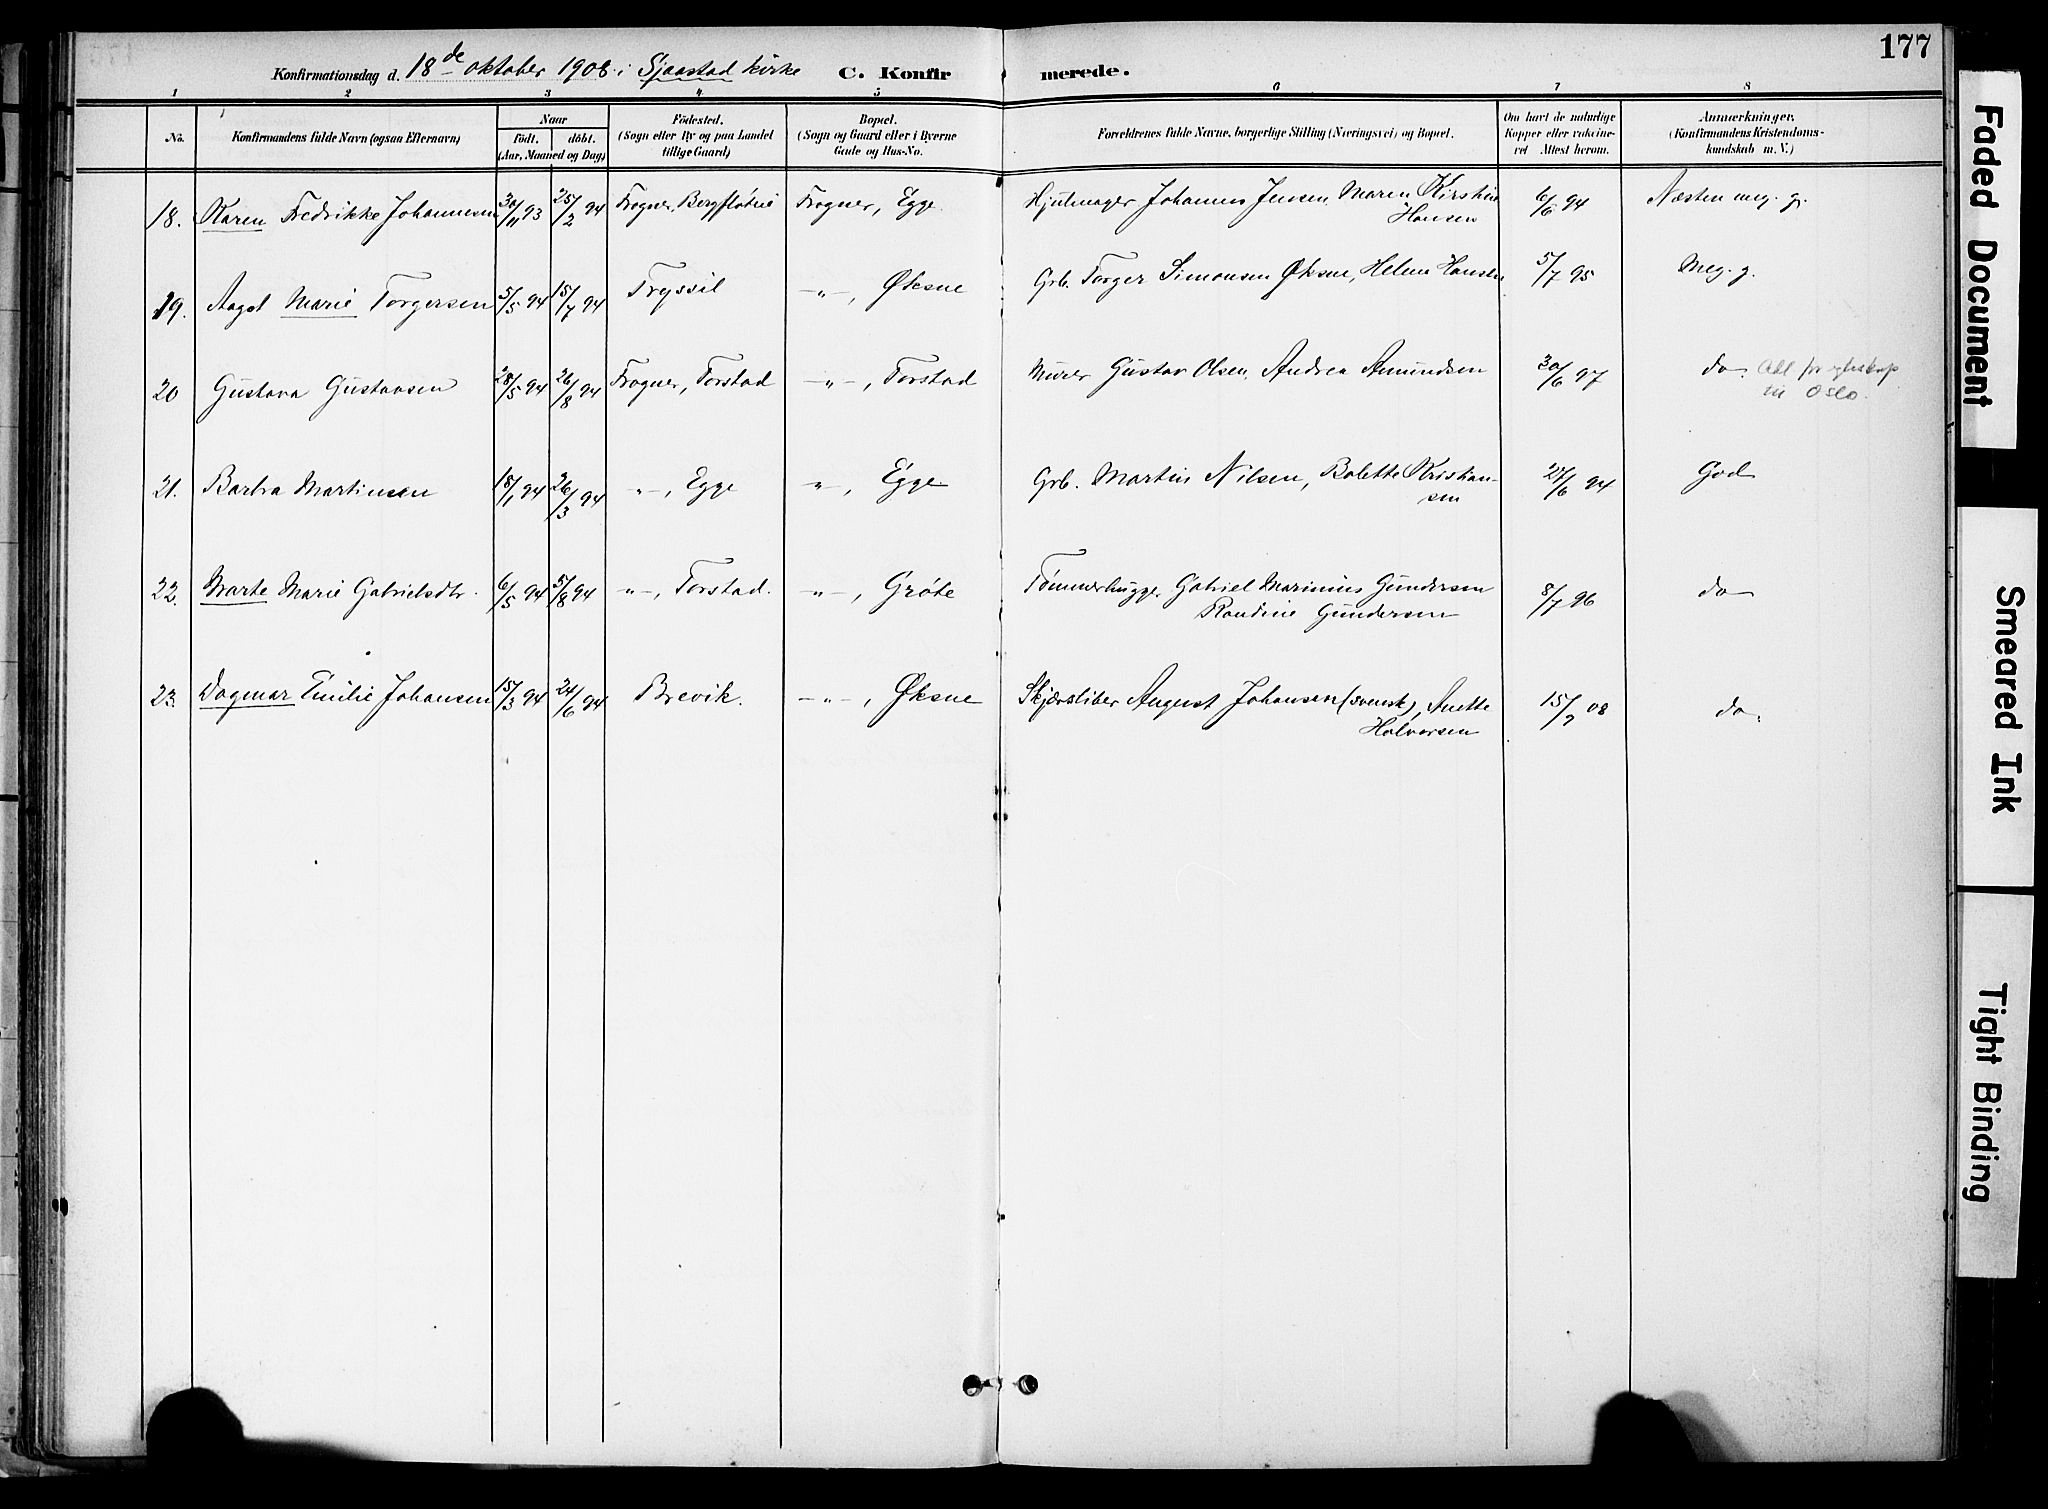 177
Konfirmationsdag d. 18de oktober 1908 i Sjaastad kirke C. Konfirmerede.
1 2 3 4 5 6 7 8
No. Konfirmandens fulde Navn (ogsaa Efternavn) Naar födt. döbt. (Aar, Maaned og Dag) Födested. (Sogn eller By og paa Landet tillige Gaard) Bopæl. (Sogn og Gaard eller i Byerne Gade og Hus-No. Forældrenes fulde Navne, borgerlige Stilling (Næringsvei) og Bopæl. Om havt de naturlige Kopper eller vaccineret Attest herom. Anmærkninger. (Konfirmandens Kristendomskundskab m. V.)
18. Karen Fredrikke Johannesen 30/11 93 25/2 94 Frogner, Bergflødtie Frogner, Egge. Hjulmager Johannes Jensen, Maren Kirstine Hansen 6/6 94 Næsten meg. g.
19. Aagot Marie Torgersen 5/5 94 15/7 94 Tryssil —„—, Øksne Grb. Torger Simonsen Øksne, Helene Hansen 5/7 95 Meg. g.
20 Gustava Gustavsen 28/5 94 26/8 94 Frogner, Torstad —„—, Torstad Murer Gustav Olsen, Andrea Amundsen 30/6 97 do. til Oslo.
21. Barbra Martinsen 18/1 94 26/3 94 „—, Egge „—, Egge Grb. Martin Nilsen, Bolette Kristiansen 24/6 94 God
22. Marte Marie Gabrielsdtr. 6/5 94 5/8 94 „—, Torstad. „—, Grøte Tømmerhugger Gabriel Marinius Gundersen Randine Gundersen 8/7 96 do
23. Dagmar Emilie Johansen 15/3 94 24/6 94 Brevik. —„—, Øksne Skjærsliber August Johansen (svensk), Anette Halvorsen 15/7 08 do.
Faded Document
Smeared Ink
Tight Binding